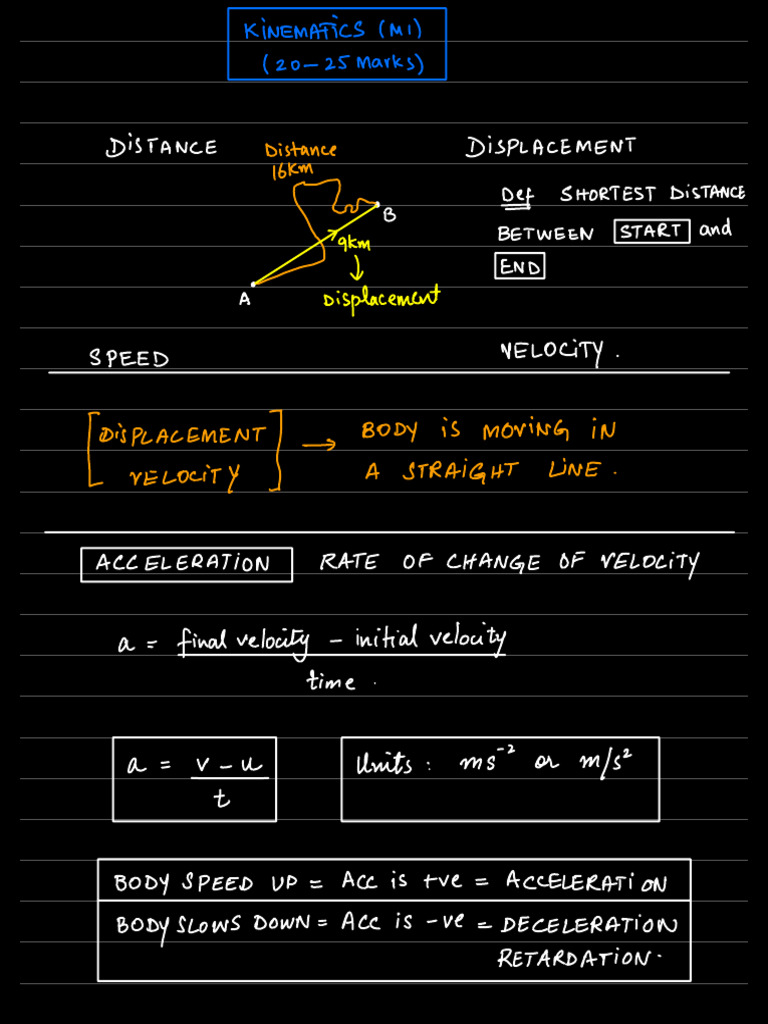 KINEMATICS (M1)
(20-25 Marks)
DISTANCE
Distance
16km
DISPLACEMENT
Def SHORTEST DISTANCE
BETWEEN START and
END
B
9km
A
Displacement
SPEED
VELOCITY.
[DISPLACEMENT
VELOCITY] → BODY IS MOVING IN
A STRAIGHT LINE.
ACCELERATION RATE OF CHANGE OF VELOCITY
a = final velocity - initial velocity
time.
a = v - u
t
Units: ms⁻² or m/s²
BODY SPEED UP = ACC is +ve = ACCELERATION
BODY SLOWS DOWN = ACC is -ve = DECELERATION
RETARDATION.